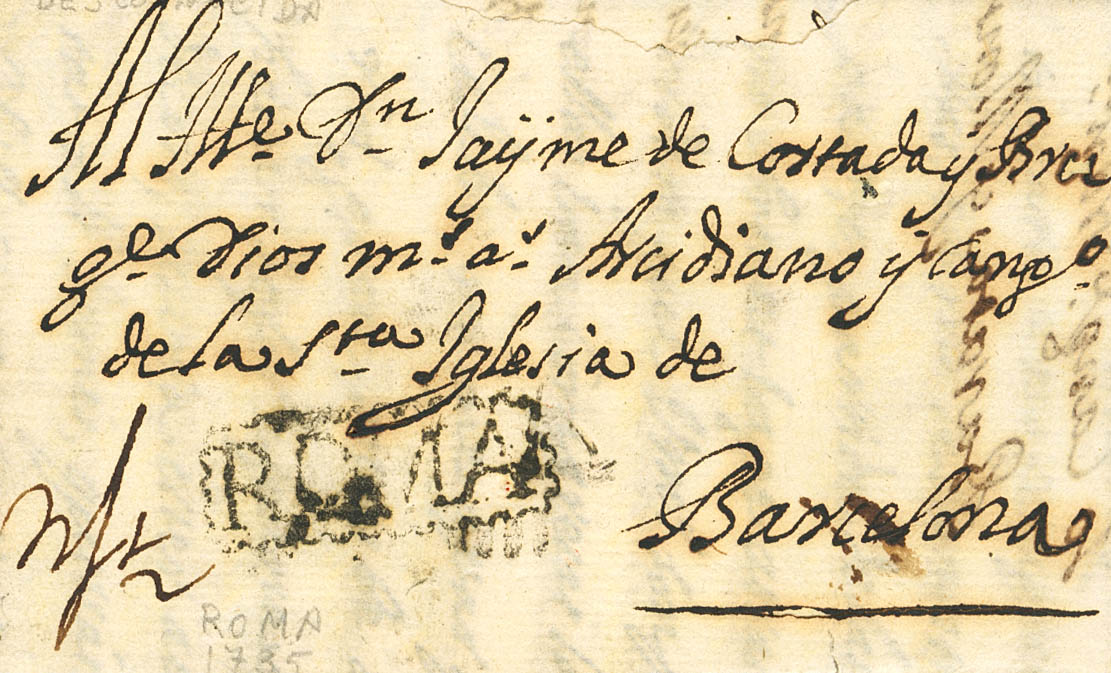 DESCONOCIDA
Al Mte. Dn. Jayme de Cortada y Bru
ge. Dios ms. as. Arcidiano y Canogo.
de la Sta. Iglesia de
ROMA
Barcelona
ROMA
1735